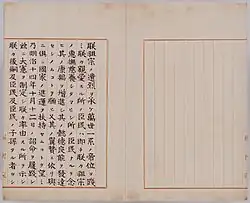 朕祖宗ノ遺烈ヲ承ケ萬世一系ノ帝位ヲ踐
ミ朕カ親愛スル所ノ臣民ハ即チ朕カ祖宗
ノ惠撫慈養シタマヒシ所ノ臣民ナルヲ念
ヒ其ノ康福ヲ増進シ其ノ懿德良能ヲ發達
セシメムコトヲ願ヒ又其ノ翼贊ニ依リ與
ニ俱ニ國家ノ進運ヲ扶持セムコトヲ望ミ
乃チ明治十四年十月十二日ノ詔命ヲ履踐シ
茲ニ大憲ヲ制定シ朕カ率由スル所ヲ示シ
朕カ後嗣及臣民及臣民ノ子孫タル者ヲシ